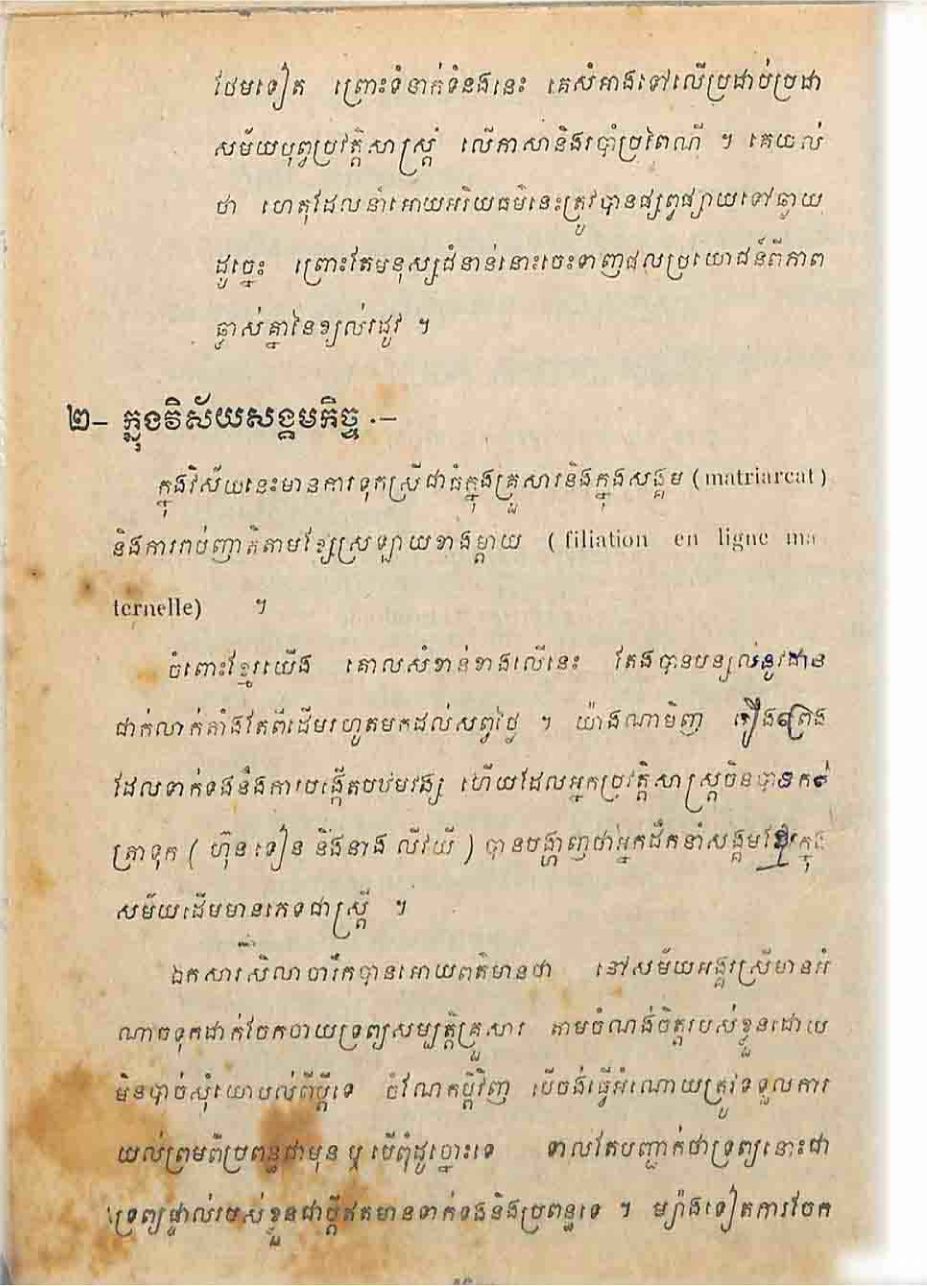 ថែមទៀត ព្រោះទំនាក់ទំនងនេះ គេសំអាងទៅលើប្រដាប់ប្រដា
សម័យបុព្វប្រវត្តិសាស្ត្រ លើភាសានិងរបាំប្រពៃណី ។ គេយល់
ថា ហេតុដែលនាំអោយអរិយធម៌នេះត្រូវបានផ្សព្វផ្សាយទៅឆ្ងាយ
ដូច្នេះ ព្រោះតែមនុស្សជំនាន់នោះចេះទាញផលប្រយោជន៍ពីភាព
ឆ្លាស់គ្នានៃខ្យល់រដូវ ។
២– ក្នុងវិស័យសង្គមកិច្ច .–
ក្នុងវិស័យនេះមានការទុកស្រីជាធំក្នុងគ្រួសារនិងក្នុងសង្គម (matriarcat)
និងការរាប់ញាតិតាមខ្សែស្រឡាយខាងម្ដាយ (filiation en ligne ma
ternelle) ។
ចំពោះខ្មែរយើង គោលសំខាន់ខាងលើនេះ តែងបានបន្សល់នូវដាន
ជាក់លាក់តាំងតែពីដើមរហូតមកដល់សព្វថ្ងៃ ។ យ៉ាងណាមិញ រឿងព្រេង
ដែលទាក់ទងនឹងការបង្កើតបឋមវង្ស ហើយដែលអ្នកប្រវត្តិសាស្ត្រចិនបានកត់
ត្រាទុក ( ហ៊ុនទៀន និងនាង លីវយី ) បានបង្ហាញថាអ្នកដឹកនាំសង្គមខ្មែរក្នុង
សម័យដើមមានភេទជាស្ត្រី ។
ឯកសារសិលាចារឹកបានអោយពត៌មានថា នៅសម័យអង្គរស្រីមានអំ
ណាចទុកដាក់ចែកចាយទ្រព្យសម្បត្តិគ្រួសារ តាមចំណង់ចិត្តរបស់ខ្លួនដោយ
មិនបាច់សុំយោបល់ពីប្ដីទេ ចំណែកប្ដីវិញ បើចង់ធ្វើអំណោយត្រូវទទួលការ
យល់ព្រមពីប្រពន្ធជាមុន ឬ បើពុំដូច្នោះទេ ទាល់តែបញ្ជាក់ថាទ្រព្យនោះជា
ទ្រព្យផ្ទាល់របស់ខ្លួនជាប្ដីឥតមានទាក់ទងនិងប្រពន្ធទេ ។ ម្យ៉ាងទៀតការចែក